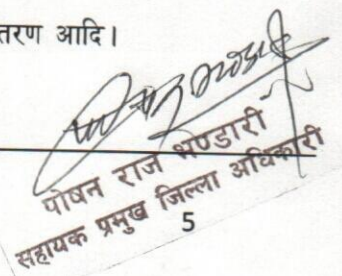 तरण आदि।
पोषन राज भण्डारी
सहायक प्रमुख जिल्ला अधिकारी
5